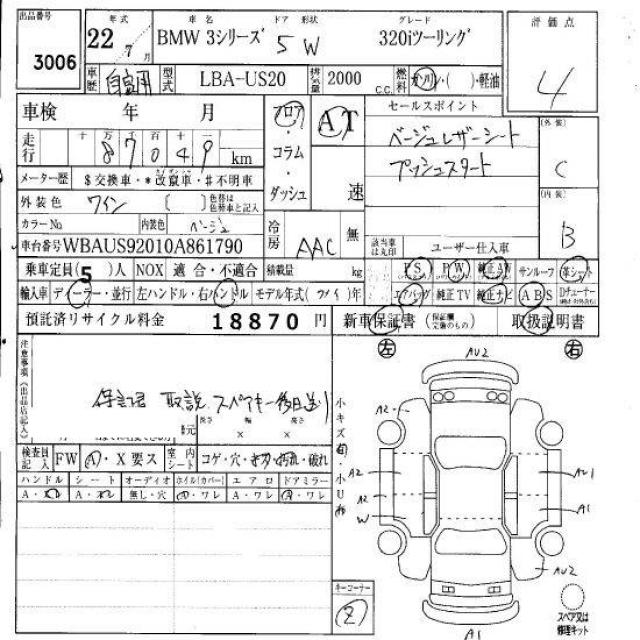 出品番号 年式 車名 ドア 形状 グレード 評価点
3006 22 年 7月 BMW 3シリーズ 5 W 320iツーリング 4
車歴 自家用 型式 LBA-US20 排気量 2000 c.c. 燃料 ガソリン・( )・軽油
車検 年 月 フロア AT セールスポイント
走行 十 万 千 百 十 一
8 7 0 4 9 km ・コラム・ダッシュ 速 ベージュレザーシート
プッシュスタート
外装 C
メーター歴 $交換車・*改竄車・#不明車
外装色 ワイン ( ) 色替は色替車と記入 内装 B
カラーNo 内装色 ベージュ 冷房 AAC 無
車台番号 WBAUS92010A861790 該当車は丸印 ユーザー仕入車
乗車定員(5)人 NOX 適合・不適合 積載量 kg PS PW 純正AW サンルーフ 革シート
輸入車 ディーラー・並行 左ハンドル・右ハンドル モデル年式( )年 エアバッグ 純正TV 純正ナビ ABS Dチューナー
預託済リサイクル料金 18870 円 新車保証書 (保証欄完備のもの) 取扱説明書
左 右
注意事項(出品店記入)
保証書 取説 スペアキー後日送り
長さ 幅 高さ
× ×
小キズ・凹・小U有
検査員記入 FW A・X要ス 室内シート コゲ・穴・キズ・汚れ・破れ
ハンドル シート オーディオ ホイル(カバー) エアロ ドアミラー
A・スレ A・スレ 無し・穴 A・ワレ A・ワレ A・ワレ
AU2
A2
A2 A1
A2
W A1
AU2
A1
キーコーナー
2
スペア又は修理キット